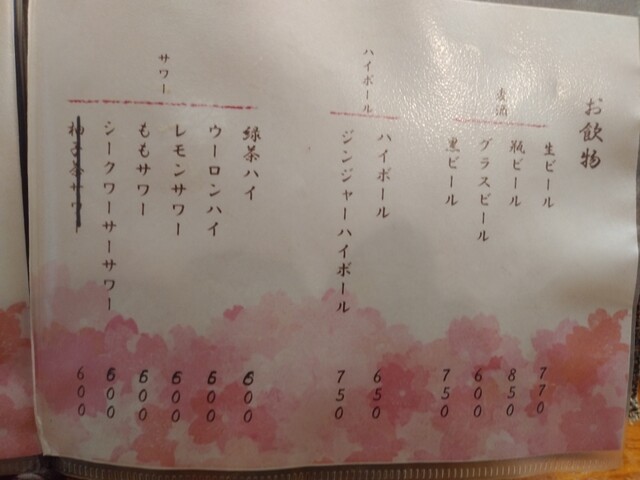 お飲物
麦酒
生ビール 770
瓶ビール 850
グラスビール 600
黒ビール 750
ハイボール
ハイボール 650
ジンジャーハイボール 750
サワー
緑茶ハイ 600
ウーロンハイ 600
レモンサワー 600
ももサワー 600
シークワーサーサワー 600
600